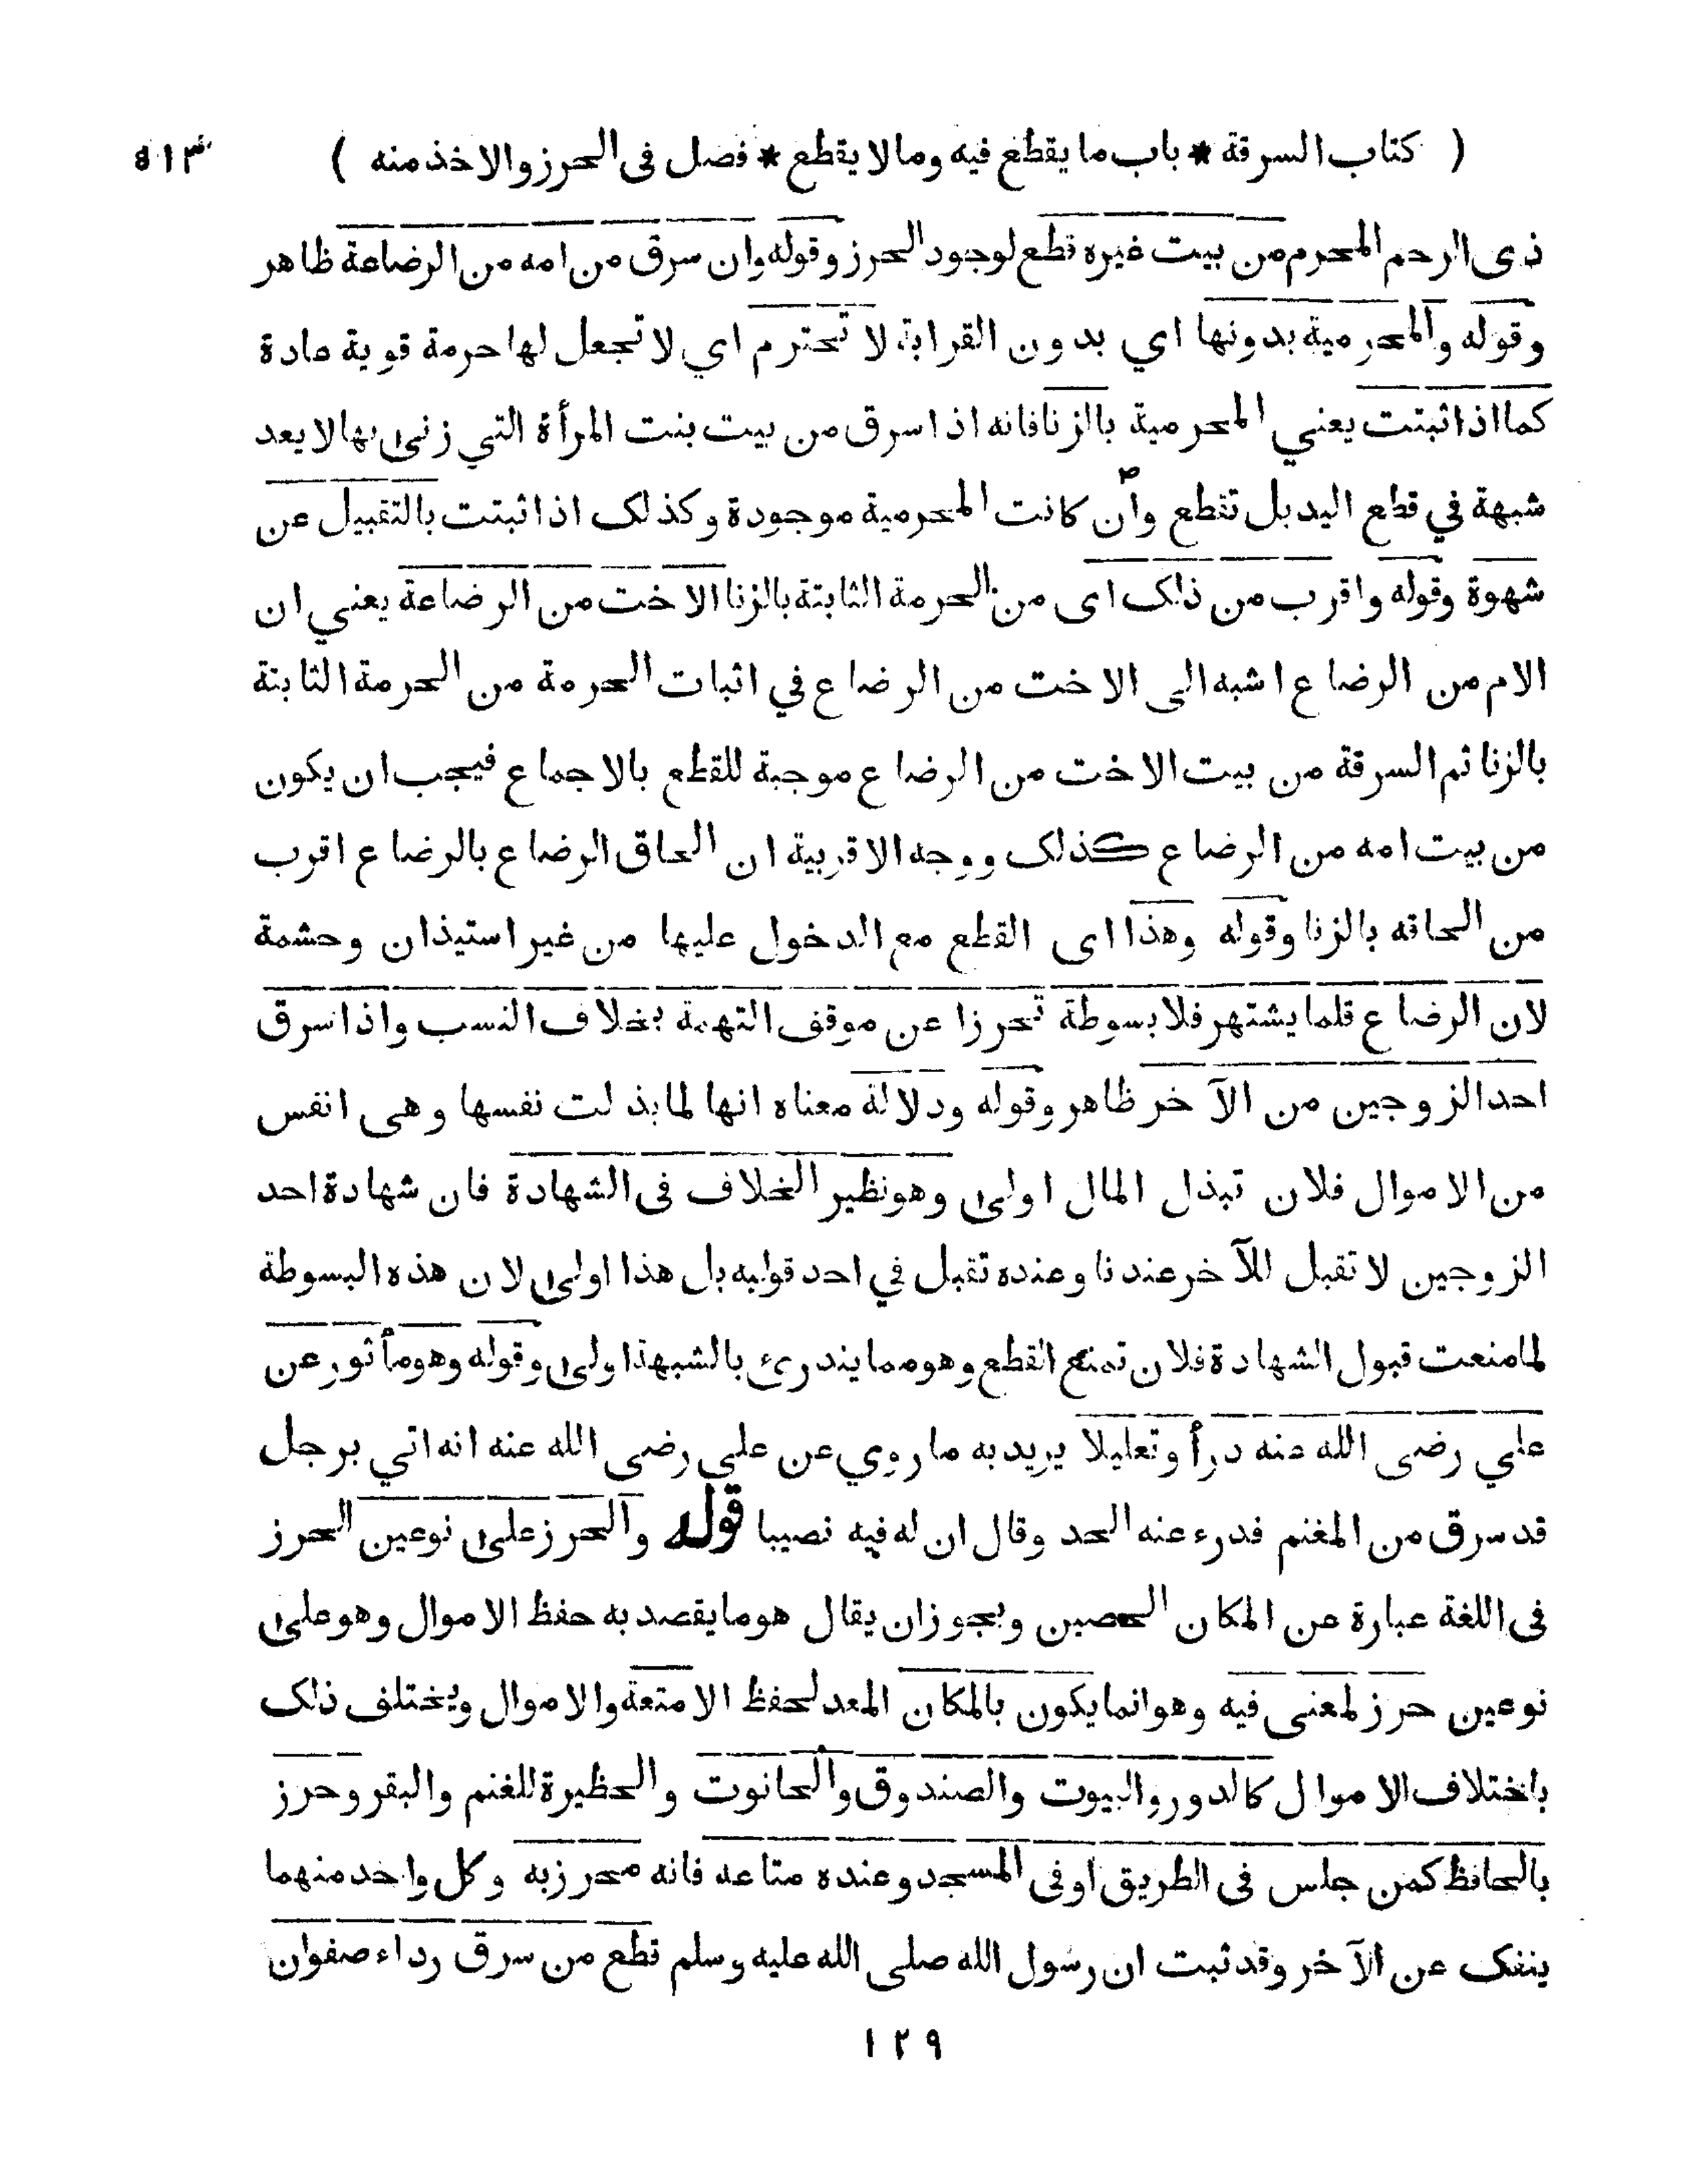 ( كتاب السرقة * باب ما يقطع فيه وما لا يقطع * فصل فى الحرز والاخذ منه ) ٥١٣
ذى الرحم المحرم من بيت غيره قطع لوجود الحرز وقوله وان سرق من امه من الرضاعة ظاهر
وقوله والمحرمية بدونها اي بدون القرابة لا تحترم اي لا تجعل لها حرمة قوية عادة
كما اذا ثبتت يعني المحرمية بالزنا فانه اذا سرق من بيت بنت المرأة التي زنى بها لا يعد
شبهة في قطع اليد بل تقطع وان كانت المحرمية موجودة وكذلك اذا ثبتت بالتقبيل عن
شهوة وقوله واقرب من ذلك اى من الحرمة الثابتة بالزنا الاخت من الرضاعة يعني ان
الام من الرضاع اشبه الى الاخت من الرضاع في اثبات الحرمة من الحرمة الثابتة
بالزنا ثم السرقة من بيت الاخت من الرضاع موجبة للقطع بالاجماع فيجب ان يكون
من بيت امه من الرضاع كذلك ووجه الاقربية ان الحاق الرضاع بالرضاع اقرب
من الحاقه بالزنا وقوله وهذا اى القطع مع الدخول عليها من غير استيذان وحشمة
لان الرضاع قلما يشتهر فلا بسوطة تحرزا عن موقف التهمة بخلاف النسب واذا سرق
احد الزوجين من الآخر ظاهر وقوله ودلالة معناه انها لما بذلت نفسها وهى انفس
من الاموال فلان تبذل المال اولى وهو نظير الخلاف فى الشهادة فان شهادة احد
الزوجين لا تقبل للآخر عندنا وعنده تقبل في احد قوليه بل هذا اولى لان هذه البسوطة
لما منعت قبول الشهادة فلان تمنع القطع وهو مما يندرئ بالشبهة اولى وقوله وهو مأثور عن
علي رضى الله عنه درأ وتعليلا يريد به ما روي عن علي رضى الله عنه انه اتي برجل
قد سرق من المغنم فدرء عنه الحد وقال ان له فيه نصيبا قوله والحرز على نوعين الحرز
فى اللغة عبارة عن المكان الحصين ويجوز ان يقال هو ما يقصد به حفظ الاموال وهو على
نوعين حرز لمعنى فيه وهو انما يكون بالمكان المعد لحفظ الامتعة والاموال ويختلف ذلك
باختلاف الاموال كالدور والبيوت والصندوق والحانوت والحظيرة للغنم والبقر وحرز
بالحافظ كمن جلس فى الطريق او فى المسجد وعنده متاعه فانه محرز به وكل واحد منهما
ينفك عن الآخر وقد ثبت ان رسول الله صلى الله عليه وسلم قطع من سرق رداء صفوان
١٢٩